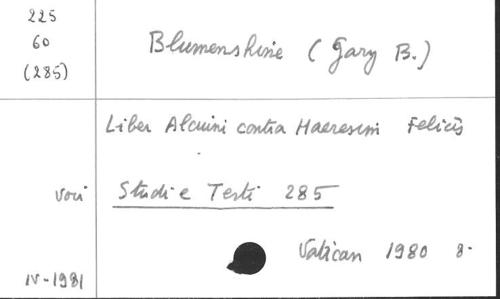 225
60
(285)
Blumenshine (Gary B.)
Liber Alcuini contra Haeresim Felicis
Voir Studi e Testi 285
Vatican 1980 8·
IV-1981